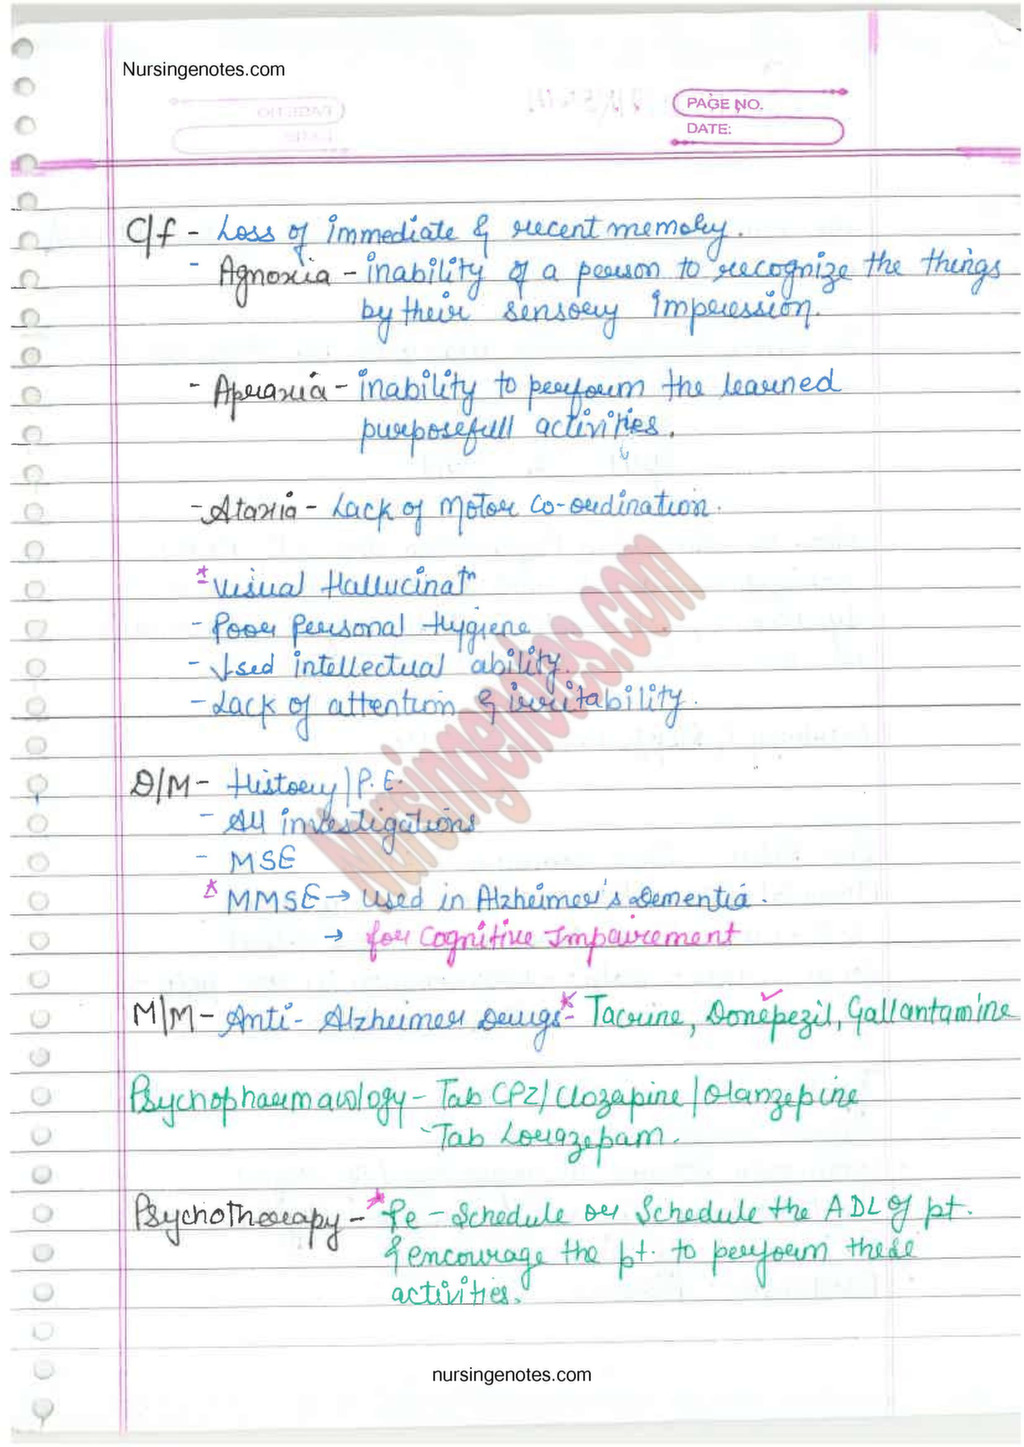 Nursingenotes.com
PAGE NO.
DATE:
C/f - Loss of immediate & recent memory.
- Agnoxia - inability of a person to recognize the things
by their sensory impression.
- Apraxia - inability to perform the learned
purposefull activities.
- Ataxia - Lack of Motor Co-ordination.
* Visual Hallucinatn
- Poor Personal Hygiene
- ↓sed intellectual ability.
- Lack of attention & irritability.
D/M - History / P.E.
- All investigations
- MSE
* MMSE → Used in Alzheimer's Dementia.
→ for Cognitive Impairement
M/M - Anti- Alzheimer Drugs * - Tacrine, Donepezil, Gallantamine
Psychopharmacology - Tab CPZ / Clozapine / Olanzepine
- Tab Lorazepam.
Psychotherapy - * Pe - Schedule or Schedule the ADL of pt.
& encourage the pt. to perform these
activities.
Nursingenotes.com
nursingenotes.com